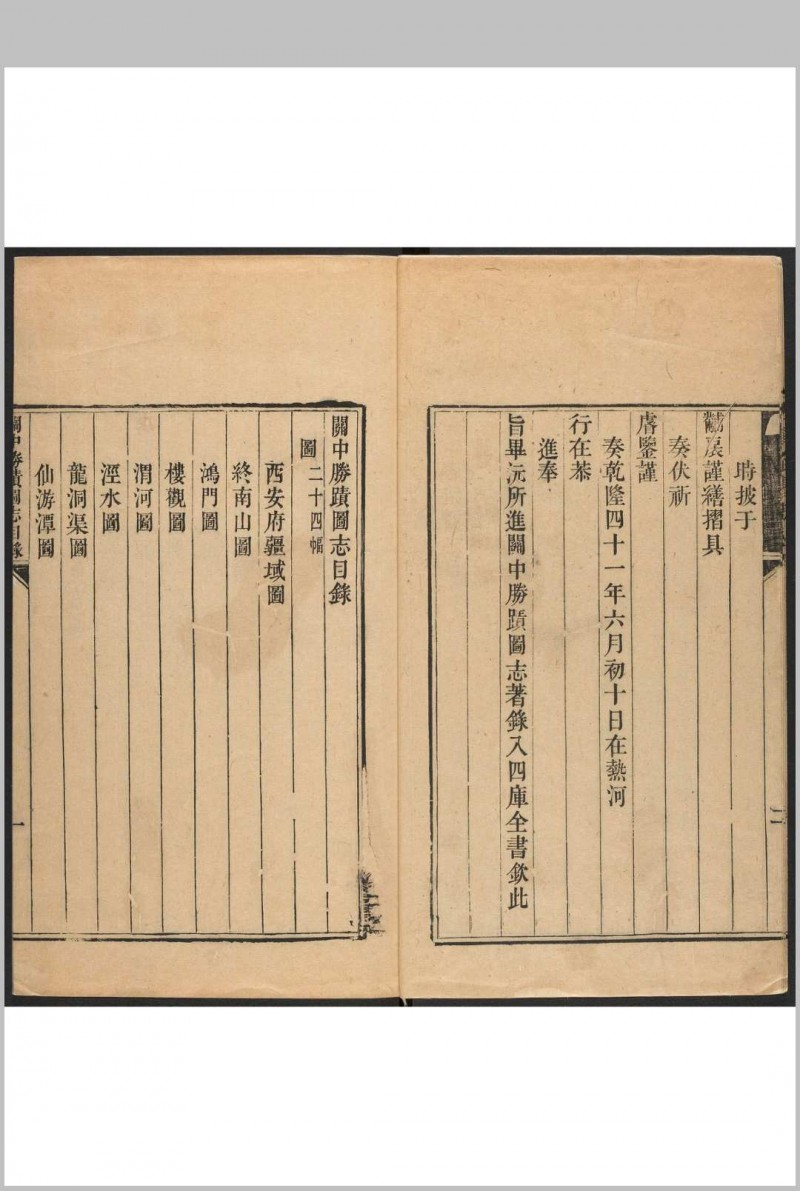 時披于
黼扆謹繕摺具
奏伏祈
睿鑒謹
奏乾隆四十一年六月初十日在熱河
行在恭
進奉
旨畢沅所進關中勝蹟圖志著錄入四庫全書欽此
二
關中勝蹟圖志目錄
圖二十四幅
西安府疆域圖
終南山圖
鴻門圖
樓觀圖
渭河圖
涇水圖
龍洞渠圖
仙游潭圖
關中勝蹟圖志目錄
一